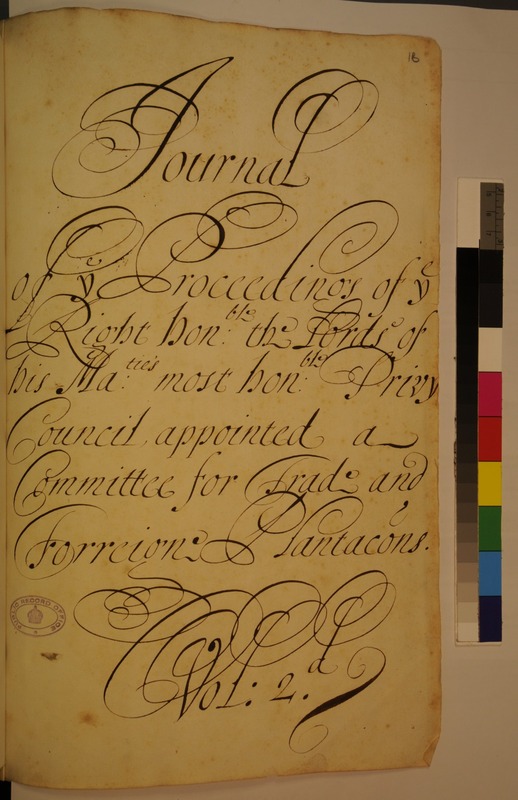 16
Journal
of yͤ Proceedings of yͤ
Right hon:ble the Lords of
his Ma:ties most hon:ble Privy
Council appointed a
Committee for Trade and
Forreigne Plantacons.
PUBLIC RECORD OFFICE
Vol: 2.d